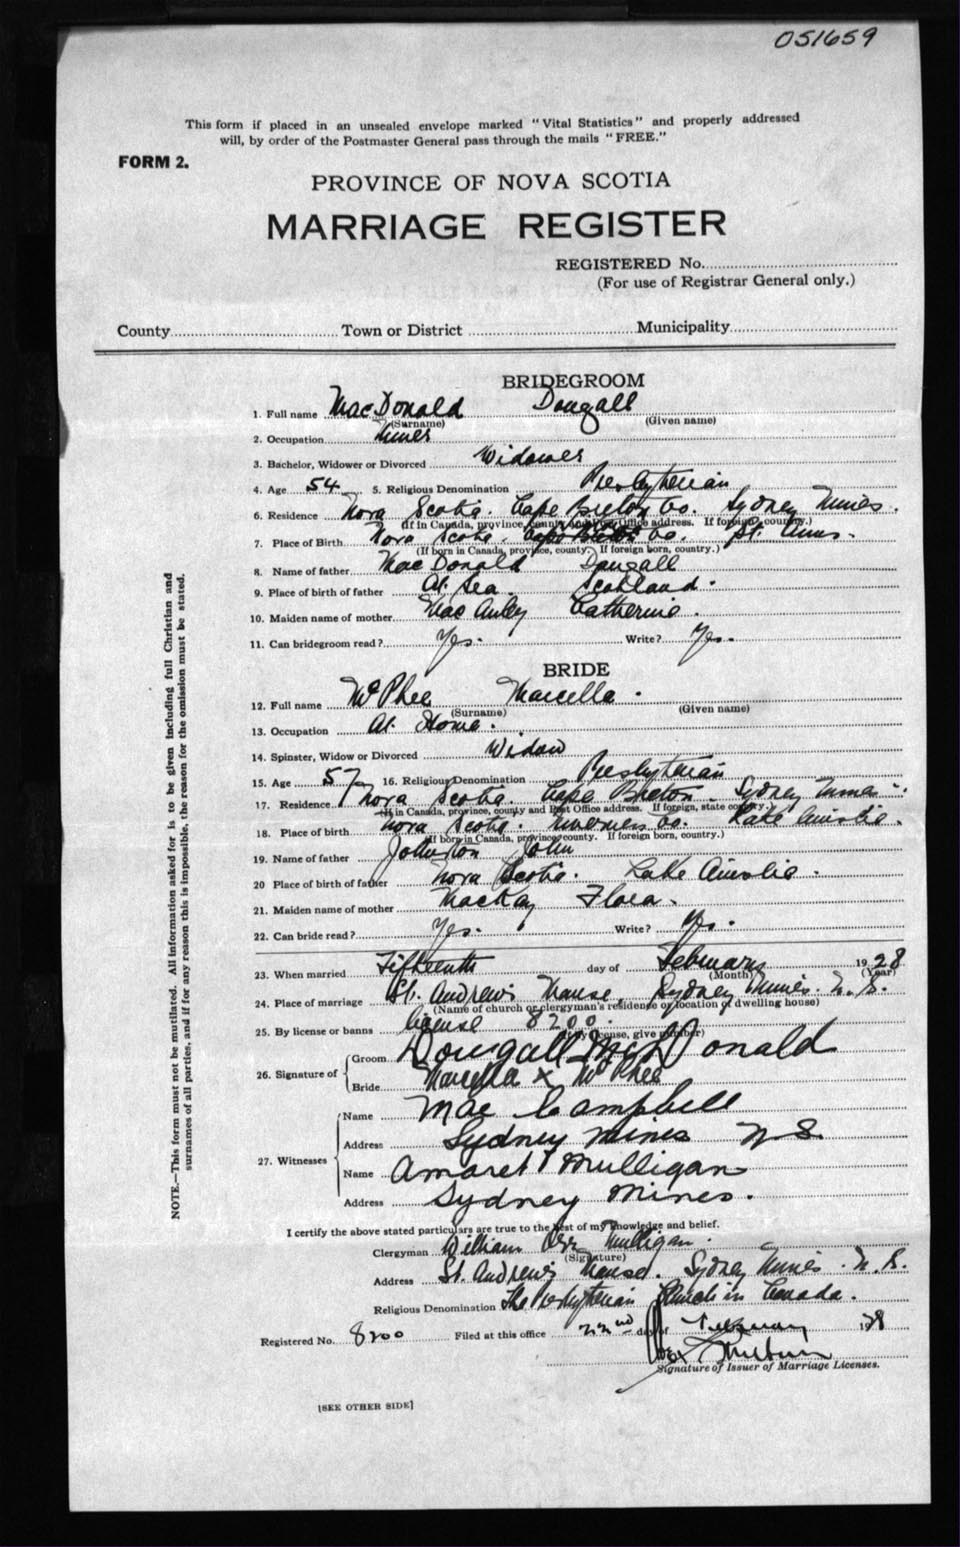 051659
This form if placed in an unsealed envelope marked "Vital Statistics" and properly addressed
will, by order of the Postmaster General pass through the mails "FREE."
FORM 2.
PROVINCE OF NOVA SCOTIA
MARRIAGE REGISTER
REGISTERED No.
(For use of Registrar General only.)
County Town or District Municipality
BRIDEGROOM
1. Full name MacDonald Dougall
(Surname) (Given name)
2. Occupation Miner
3. Bachelor, Widower or Divorced Widower
4. Age 54 5. Religious Denomination Presbyterian
6. Residence Nova Scotia. Cape Breton Co. Sydney Mines.
(If in Canada, province, county and Post Office address. If foreign, country.)
7. Place of Birth Nova Scotia. Co. St. Anns.
(If born in Canada, province, county. If foreign born, country.)
8. Name of father MacDonald Dougall
9. Place of birth of father At Sea Scotland.
10. Maiden name of mother MacAuley Catherine.
11. Can bridegroom read? Yes. Write? Yes.
BRIDE
12. Full name McPhee Marcella.
(Surname) (Given name)
13. Occupation At Home.
14. Spinster, Widow or Divorced Widow
15. Age 57 16. Religious Denomination Presbyterian
17. Residence Nova Scotia. Cape Breton. Sydney Mines.
(If in Canada, province, county and Post Office address. If foreign, state country.)
18. Place of birth Nova Scotia. Inverness Co. Lake Ainslie.
(If born in Canada, province, county. If foreign born, country.)
19. Name of father Johnston John
20 Place of birth of father Nova Scotia. Lake Ainslie.
21. Maiden name of mother MacKay Flora.
22. Can bride read? Yes. Write? Yes.
23. When married Fifteenth day of February 1928
(Month) (Year)
24. Place of marriage St. Andrew's Manse, Sydney Mines. N. S.
(Name of church or clergyman's residence or location of dwelling house)
25. By license or banns license 8200.
(If by license, give number)
26. Signature of Groom Dougall McDonald
Bride Marcella x McPhee
27. Witnesses Name Mae Campbell
Address Sydney Mines N S.
Name Amaret Mulligan
Address Sydney Mines.
I certify the above stated particulars are true to the best of my knowledge and belief.
Clergyman William Orr Mulligan.
(Signature)
Address St. Andrew's Manse. Sydney Mines. N. S.
Religious Denomination The Presbyterian Church in Canada.
Registered No. 8200 Filed at this office 22nd day of February 1928
Signature of Issuer of Marriage Licenses.
[SEE OTHER SIDE]
NOTE.—This form must not be mutilated. All information asked for is to be given including full Christian and
surnames of all parties, and if for any reason this is impossible, the reason for the omission must be stated.